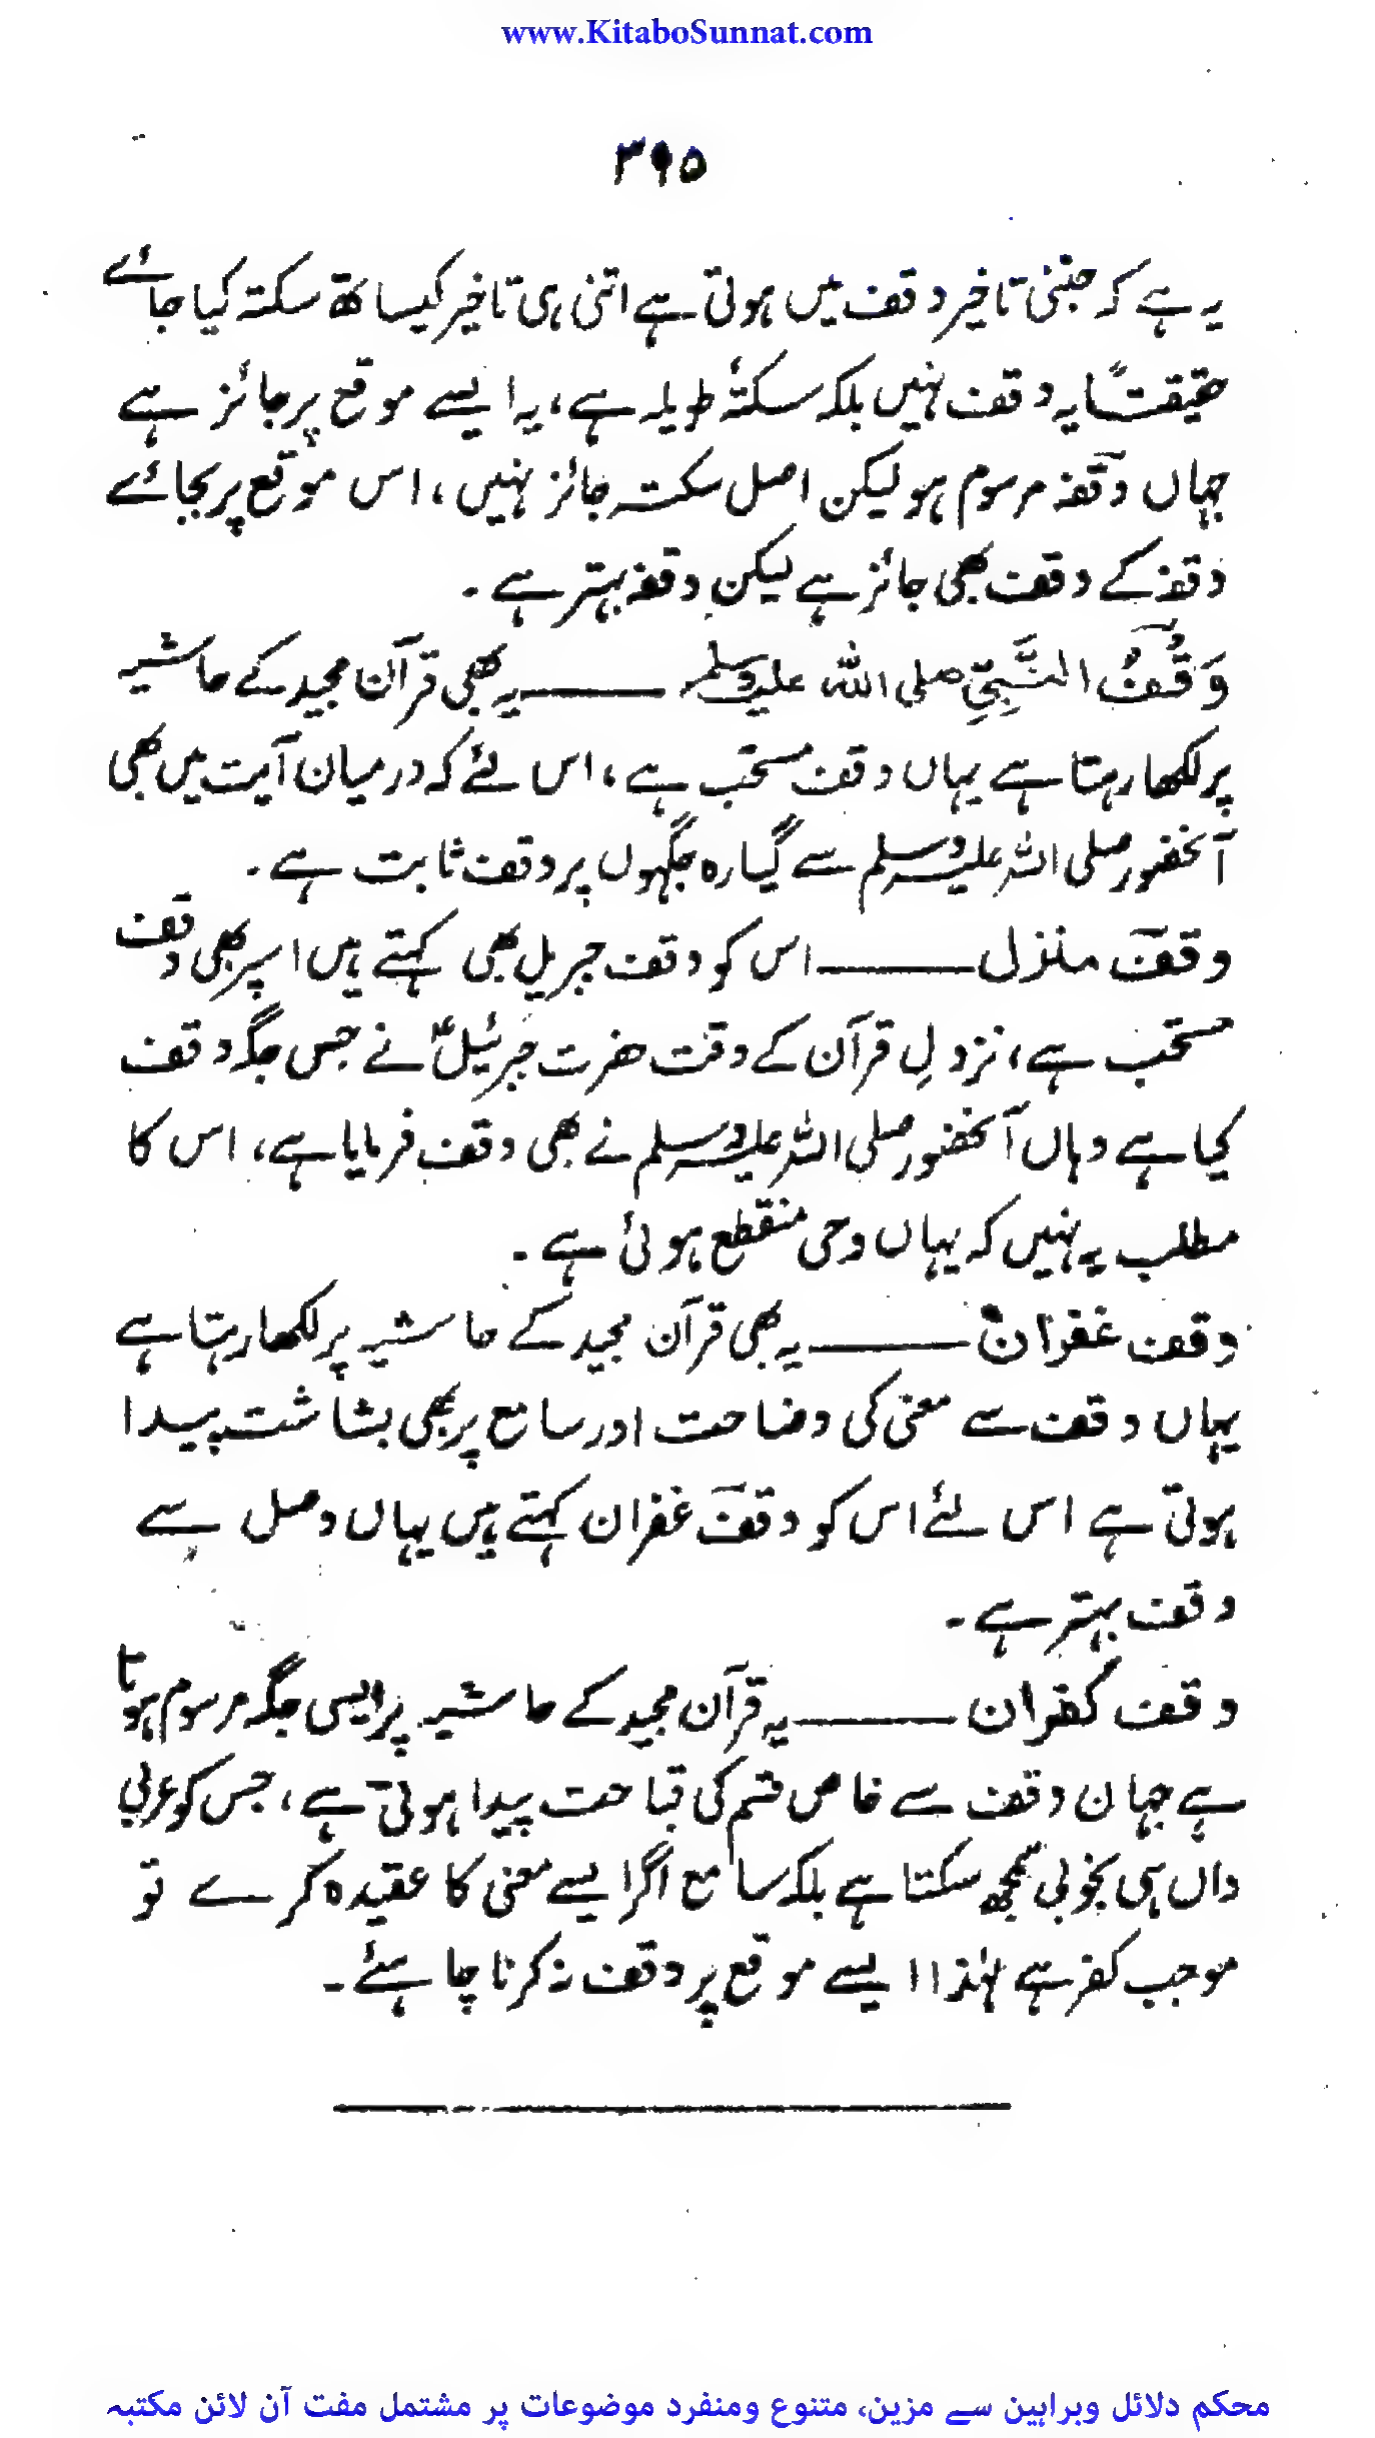 www.KitaboSunnat.com
۳۹۵
یہ ہے کہ جتنی تاخیر وقف میں ہوتی ہے اتنی ہی تاخیر کیساتھ سکتہ کیا جائے
حقیقتًا یہ وقف نہیں بلکہ سکتۂ طویلہ ہے، یہ ایسے موقع پر جائز ہے
جہاں وقفہ مرسوم ہو لیکن اصل سکتہ جائز نہیں، اس موقع پر بجائے
وقفہ کے وقف بھی جائز ہے لیکن وقفہ بہتر ہے۔
وَقْفُ النَّبِیِّ صلی اللہ علیہ وسلم ــــــ یہ بھی قرآن مجید کے حاشیہ
پر لکھا رہتا ہے یہاں وقف مستحب ہے، اس لئے کہ درمیان آیت میں بھی
آنحضور صلی اللہ علیہ وسلم سے گیارہ جگہوں پر وقف ثابت ہے۔
وقف منزل ــــــ اس کو وقف جبریل بھی کہتے ہیں اسپر بھی وقف
مستحب ہے، نزولِ قرآن کے وقت حضرت جبرئیلؑ نے جس جگہ وقف
کیا ہے وہاں آنحضور صلی اللہ علیہ وسلم نے بھی وقف فرمایا ہے، اس کا
مطلب یہ نہیں کہ یہاں وحی منقطع ہوئی ہے۔
وقف غفران ــــــ یہ بھی قرآن مجید کے حاشیہ پر لکھا رہتا ہے
یہاں وقف سے معنی کی وضاحت اور سامع پر بھی بشاشت پیدا
ہوتی ہے اس لئے اس کو وقف غفران کہتے ہیں یہاں وصل سے
وقف بہتر ہے۔
وقف کفران ــــــ یہ قرآن مجید کے حاشیہ پر ایسی جگہ مرسوم ہوتا
ہے جہان وقف سے خاص قسم کی قباحت پیدا ہوتی ہے، جس کو عربی
داں ہی بخوبی سمجھ سکتا ہے بلکہ سامع اگر ایسے معنی کا عقیدہ کرے تو
موجب کفر ہے لہٰذا ایسے موقع پر وقف نہ کرنا چاہئے۔
محکم دلائل وبراہین سے مزین، متنوع ومنفرد موضوعات پر مشتمل مفت آن لائن مکتبہ